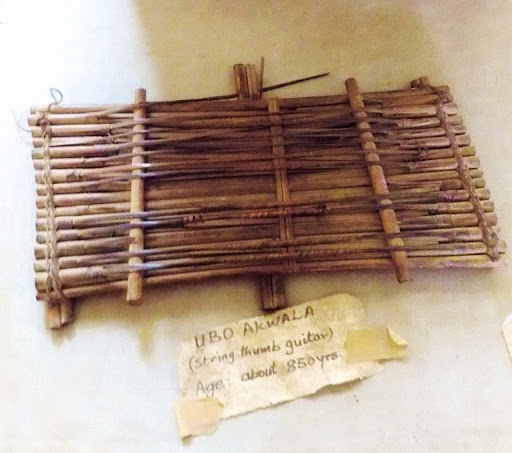 UBO AKWALA
(string thumb guitar)
Age: about 850yrs.